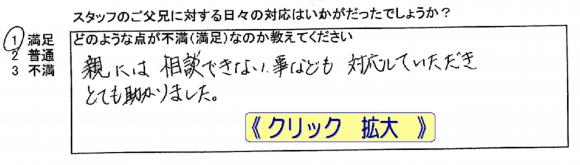 スタッフのご父兄に対する日々の対応はいかがだったでしょうか？
1 満足
2 普通
3 不満
どのような点が不満(満足)なのか教えてください
親には 相談できない事なども 対応していただき
とても助かりました。
《 クリック 拡大 》